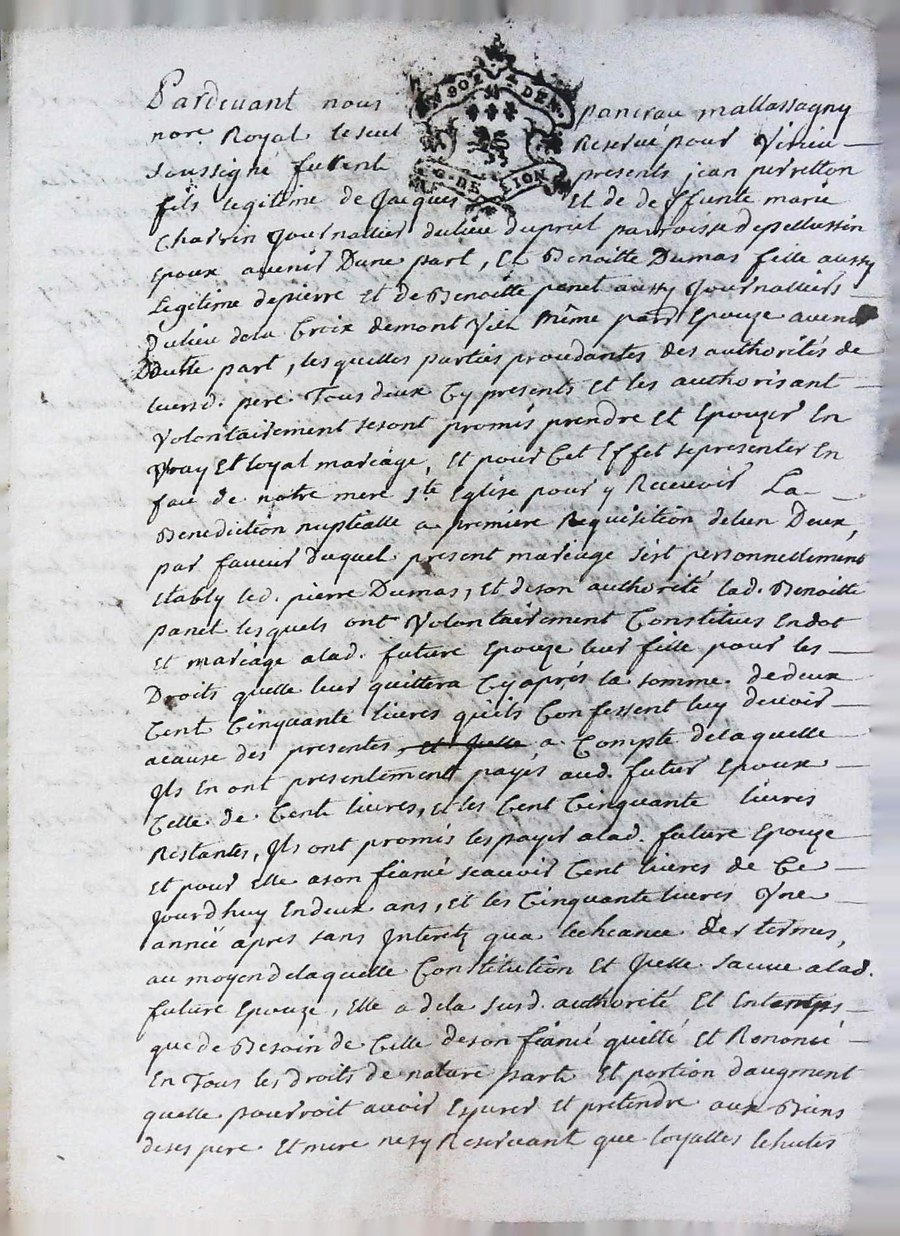 Pardevant nous pancrau mallassagny
nore Royal le seul Reservé pour Virieu
soussigné furent presents jean perretton
fils legitime de Jacques et de deffunte marie
Charvin Journallier du lieu du pril parroisse de pellussin
Epoux avenir Dune part, Et Benoitte Dumas fille aussy
Legitime de pierre Et de Benoitte panel aussy Journalliers
Du lieu de la Croix de mont Viel même parr. Epouze avenir
Dautte part, lesquelles parties proceddantes des authorités de
leursd. pere Tous deux Cy presents Et les authorisant
Volontairement se sont promis prendre Et Epouzer En
Vray Et loyal mariage, Et pour Cet Effet se presenter En
face de notre mere Ste Eglise pour y Recevoir La
Benediction nuptialle a premiere Requisition de lun Deux,
par faveur duquel present mariage sest personnellement
Etably led. pierre Dumas, Et de son authorité lad. Benoitte
panel lesquels ont Volontairement Constitués En dot
Et mariage a lad. future Epouze leur fille pour les
Droits quelle leur quittera Cy après la somme de deux
Cent Cinquante livres quils Confessent luy devoir
a cause des presentes, a Compte de laquelle
Ils En ont presentement payés aud. futur Epoux
Celle de Cent livres, Et les Cent Cinquante livres
Restantes, Ils ont promis les payer a lad. future Epouze
Et pour Elle a son fiancé scavoir Cent livres de Ce
Jourdhuy En deux ans, Et les Cinquante livres Une
année apres sans Interetz qua lecheance des termes,
au moyen de laquelle Constitution Et Icelle sauve a lad.
future Epouze, Elle a de la susd. authorité Et En temps
que de Besoin de Celle de son fiancé quitté Et Renoncé
En Tous les droits de nature part Et portion daugment
quelle pourroit avoir Esperer Et pretendre aux Biens
de ses pere Et mere ne sy Reservant que loyalles Echutes